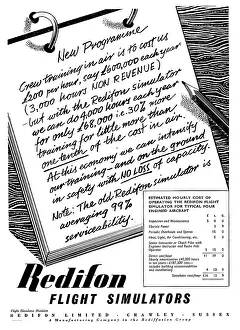 New Programme
Crew training in air is to cost us
£200 per hour, say £600,000 each year
(3,000 hours NON REVENUE)
- but with the Redifon simulator
we can do 4,000 hours each year
for only £68,000 i.e. 30% more
training for little more than
one-tenth of the cost in air.
At this economy we can intensify
our training - and on the ground
in safety with NO LOSS of capacity.
Note: The old Redifon simulator is
averaging 99%
serviceability.
ESTIMATED HOURLY COST OF
OPERATING THE REDIFON FLIGHT
SIMULATOR FOR TYPICAL FOUR
ENGINED AIRCRAFT
£ s. d.
Inspection and Maintenance
Electric Power
Periodic Overhauls and Spares
Heat, Light, Air Conditioning, etc.
Redifon
FLIGHT SIMULATORS
Flight Simulator Division
REDIFON LIMITED · CRAWLEY · SUSSEX
A Manufacturing Company in the Rediffusion Group